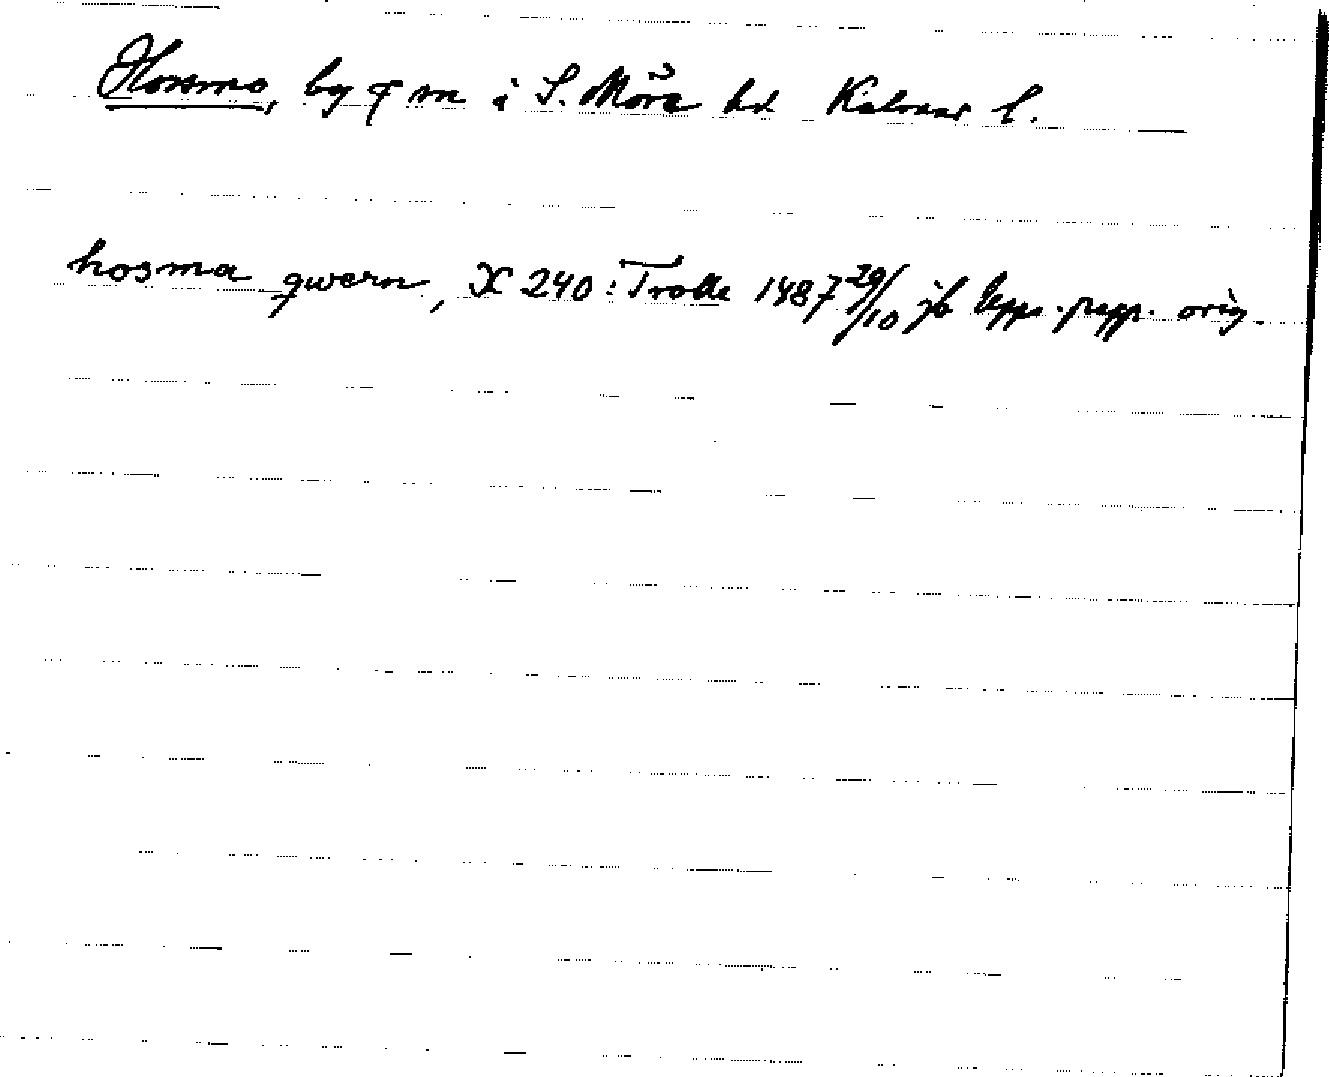 Hossmo, by i S. Möre hd Kalmar l.
hosma qwern, X 240: Trolle 1487 29/10 jb papp. orig.